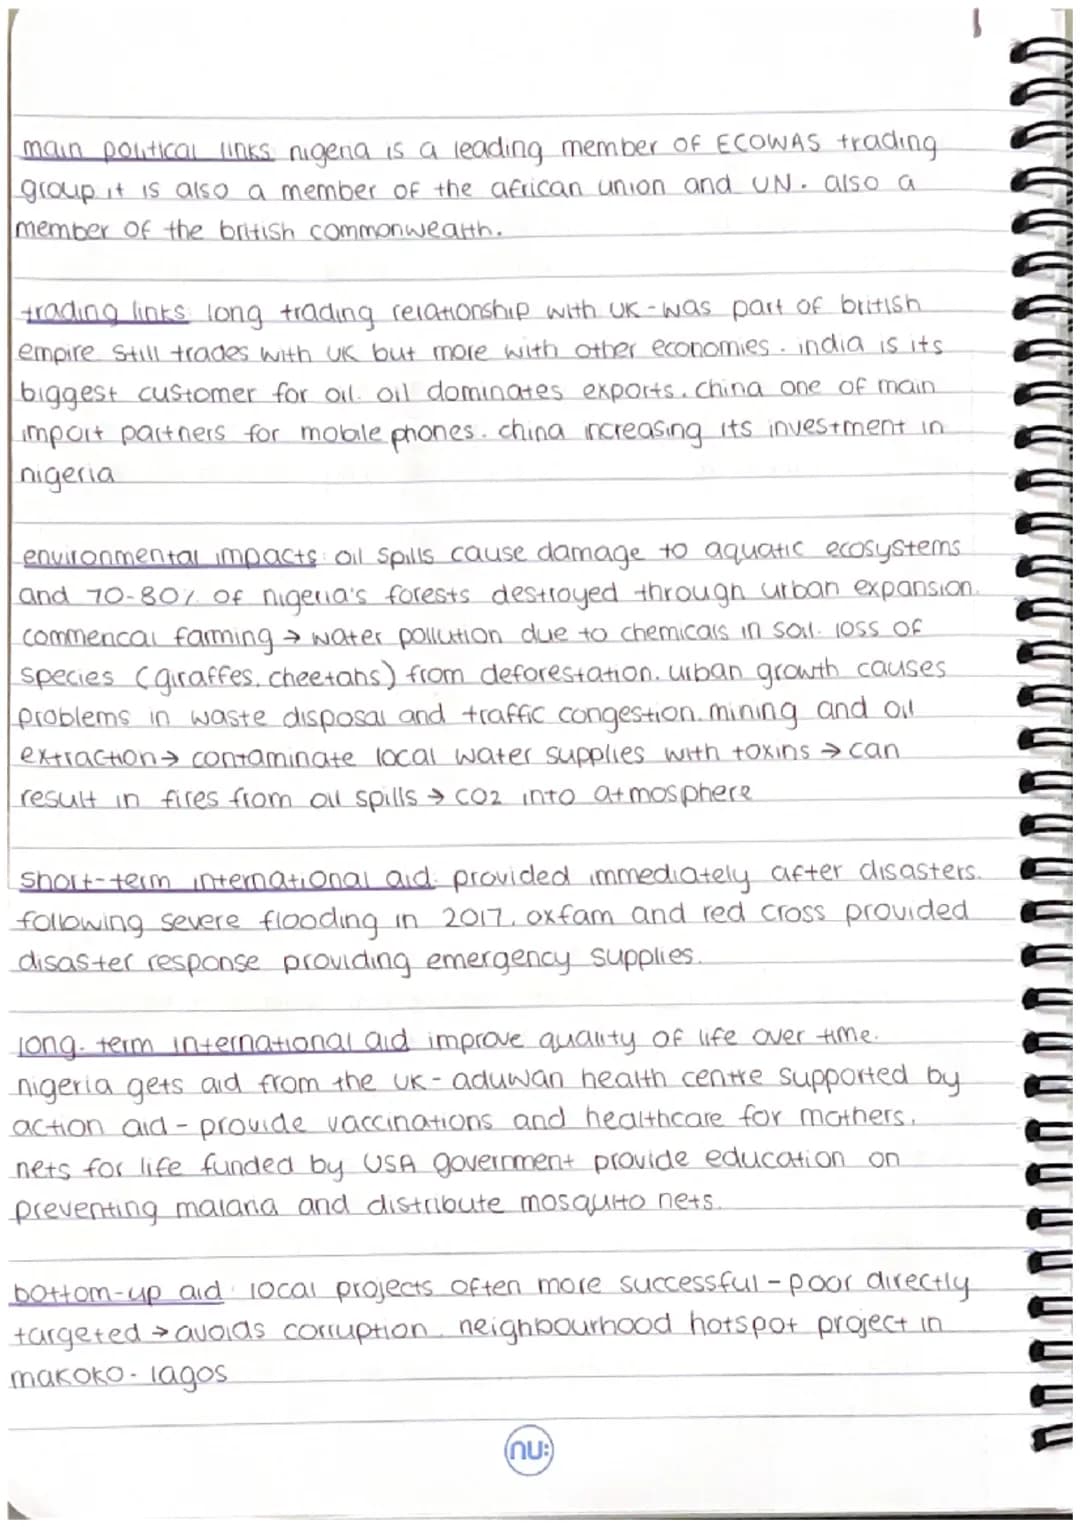 main political links: nigeria is a leading member of ECOWAS trading
group. it is also a member of the african union and UN. also a
member of the british commonwealth.
trading links: long trading relationship with UK - was part of british
empire. still trades with UK but more with other economies. india is its
biggest customer for oil. oil dominates exports. china one of main
import partners for mobile phones. china increasing its investment in
nigeria
environmental impacts: oil spills cause damage to aquatic ecosystems
and 70-80% of nigeria's forests destroyed through urban expansion.
commerical farming → water pollution due to chemicals in soil. loss of
species (giraffes, cheetahs) from deforestation. urban growth causes
problems in waste disposal and traffic congestion. mining and oil
extraction → contaminate local water supplies with toxins → can
result in fires from oil spills → CO2 into atmosphere
short-term international aid: provided immediately after disasters.
following severe flooding in 2017, oxfam and red cross provided
disaster response providing emergency supplies.
long-term international aid: improve quality of life over time.
nigeria gets aid from the UK - aduwan health centre supported by
action aid - provide vaccinations and healthcare for mothers.
nets for life funded by USA government provide education on
preventing malaria and distribute mosquito nets.
bottom-up aid: local projects often more successful - poor directly
targeted → avoids corruption. neighbourhood hotspot project in
makoko - lagos
nu: